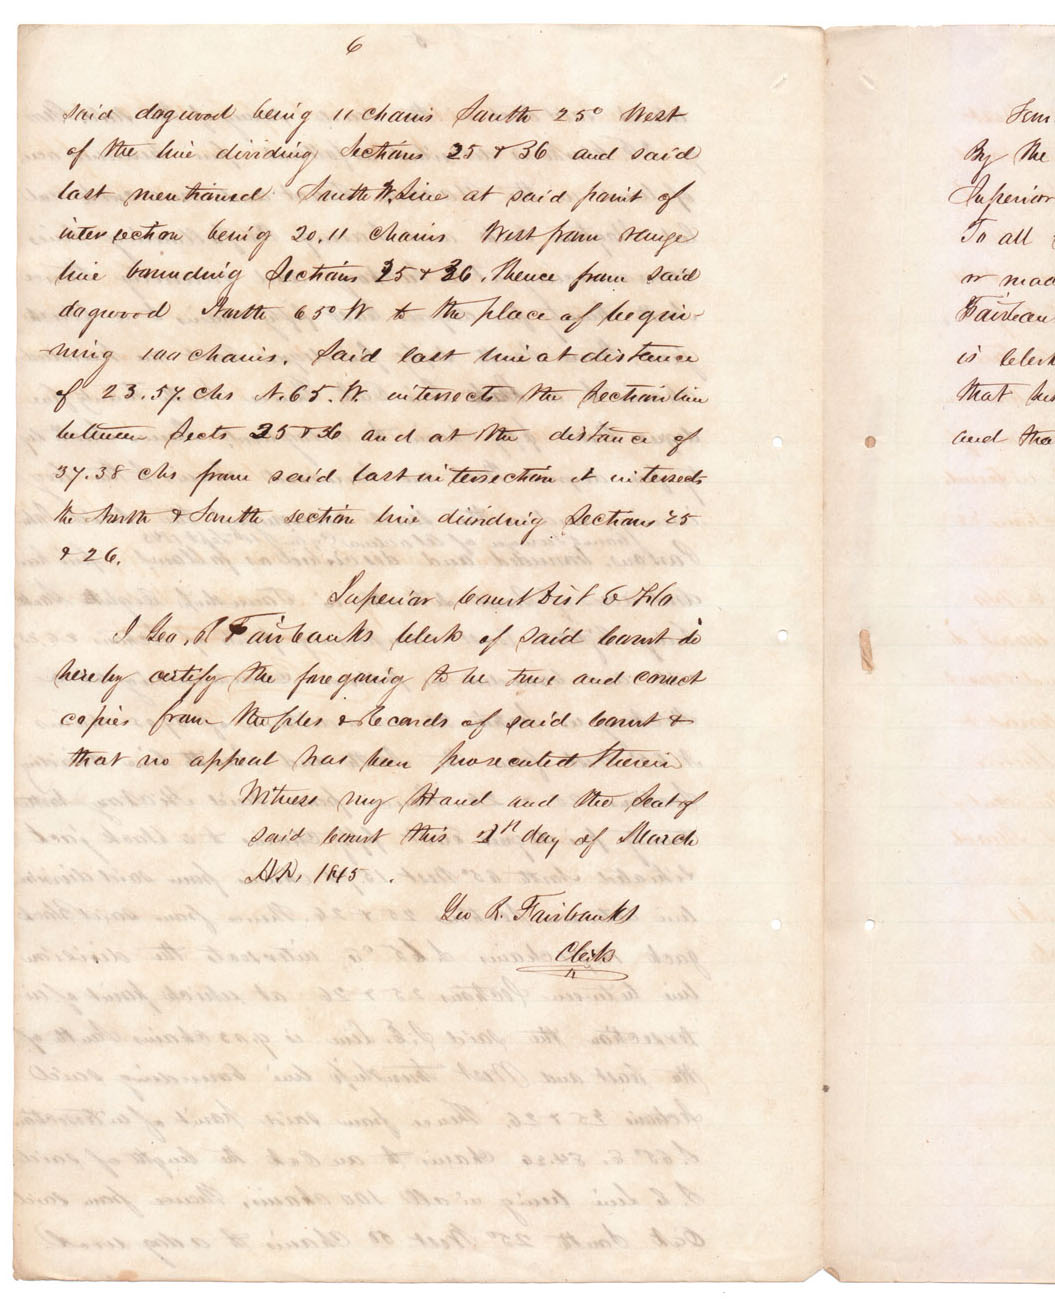 6
said dogwood being 11 chains South 25° West
of the line dividing Sections 25 & 36 and said
last mentioned South W. Line at said point of
intersection being 20.11 chains West from range
line bounding Sections 25 & 36. Thence from said
dogwood North 65° W to the place of begin-
ning 100 chains. Said last line at distance
of 23.57. chs N. 65. W. intersects the Section line
between Sects 25 & 36 and at the distance of
37.38 chs from said last intersection it intersects
the North & South section line dividing Sections 25
& 26.
Superior Court Dist E Fla
I Geo. R Fairbanks Clerk of said Court do
hereby certify the foregoing to be true and correct
copies from the files & Records of said Court &
that no appeal has been prosecuted therein
Witness my Hand and the Seal of
said Court this day of March
A.D. 1845.
Geo R. Fairbanks
Clerk
By the
Superior
To all
or mad
Fairban
is Clerk
that his
and tha